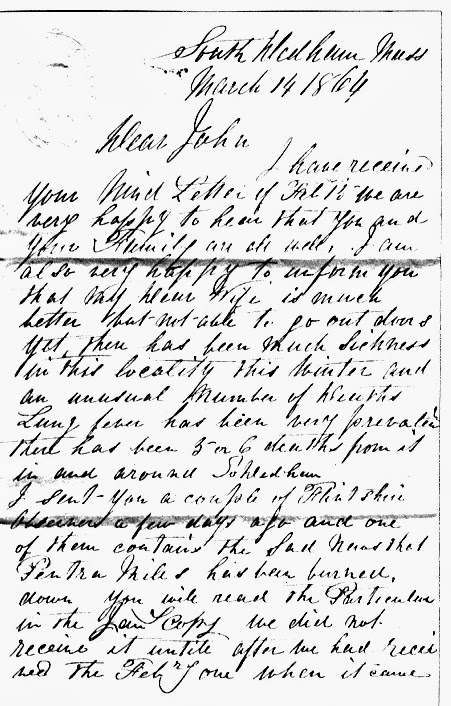 South Dedham Mass
March 14 1864
Dear John
I have receive
your kind Letter of Feb we are
very happy to hear that you and
your Family are all well, I am
also very happy to inform you
that my Dear Wife is much
better but not able to go out doors
yet, there has been much Sickness
in this locality this Winter and
an unusual Number of Deaths
Lung fever has been very prevalen
there has been 5 or 6 deaths from it
in and around S Dedham
I sent you a couple of Flintshire
Observers a few days ago and one
of them contains the Sad News that
Pentra Mills has been burned,
down You will read the Particulars
in the Jany Copy we did not
receive it untile after we had recei
ved the Feby one when it came